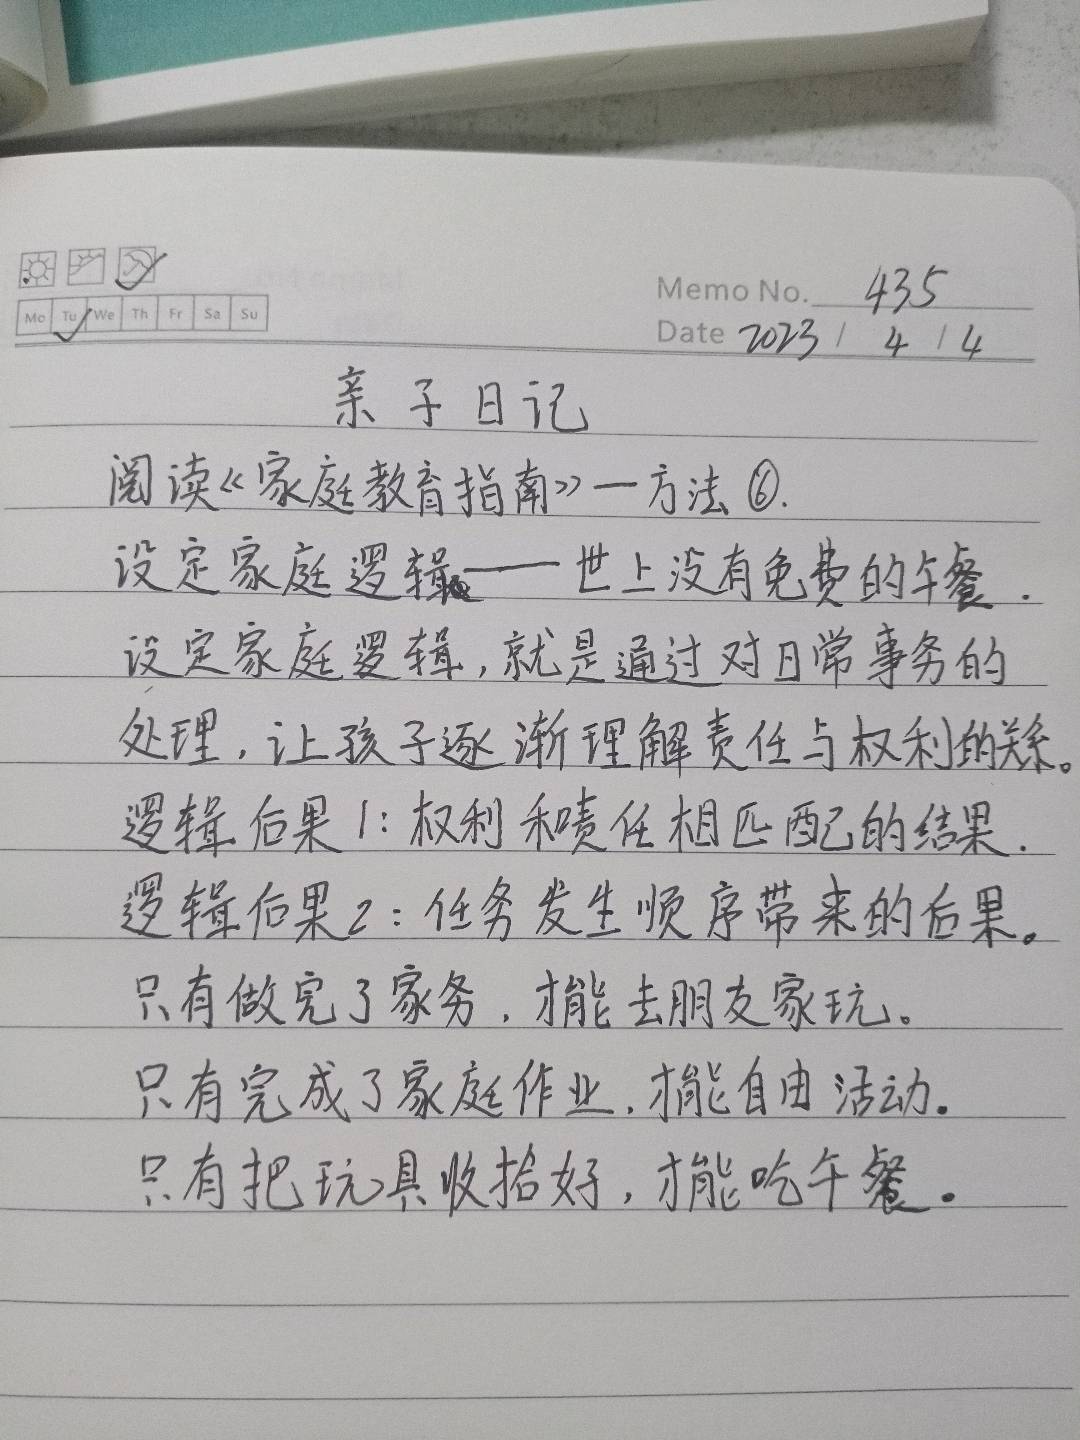 Mo Tu We Th Fr Sa Su
Memo No. 435
Date 2023 / 4 / 4
亲子日记
阅读《家庭教育指南》一方法⑥.
设定家庭逻辑——世上没有免费的午餐.
设定家庭逻辑,就是通过对日常事务的
处理,让孩子逐渐理解责任与权利的关系。
逻辑后果1:权利和责任相匹配的结果.
逻辑后果2:任务发生顺序带来的后果。
只有做完了家务,才能去朋友家玩。
只有完成了家庭作业,才能自由活动。
只有把玩具收拾好,才能吃午餐。